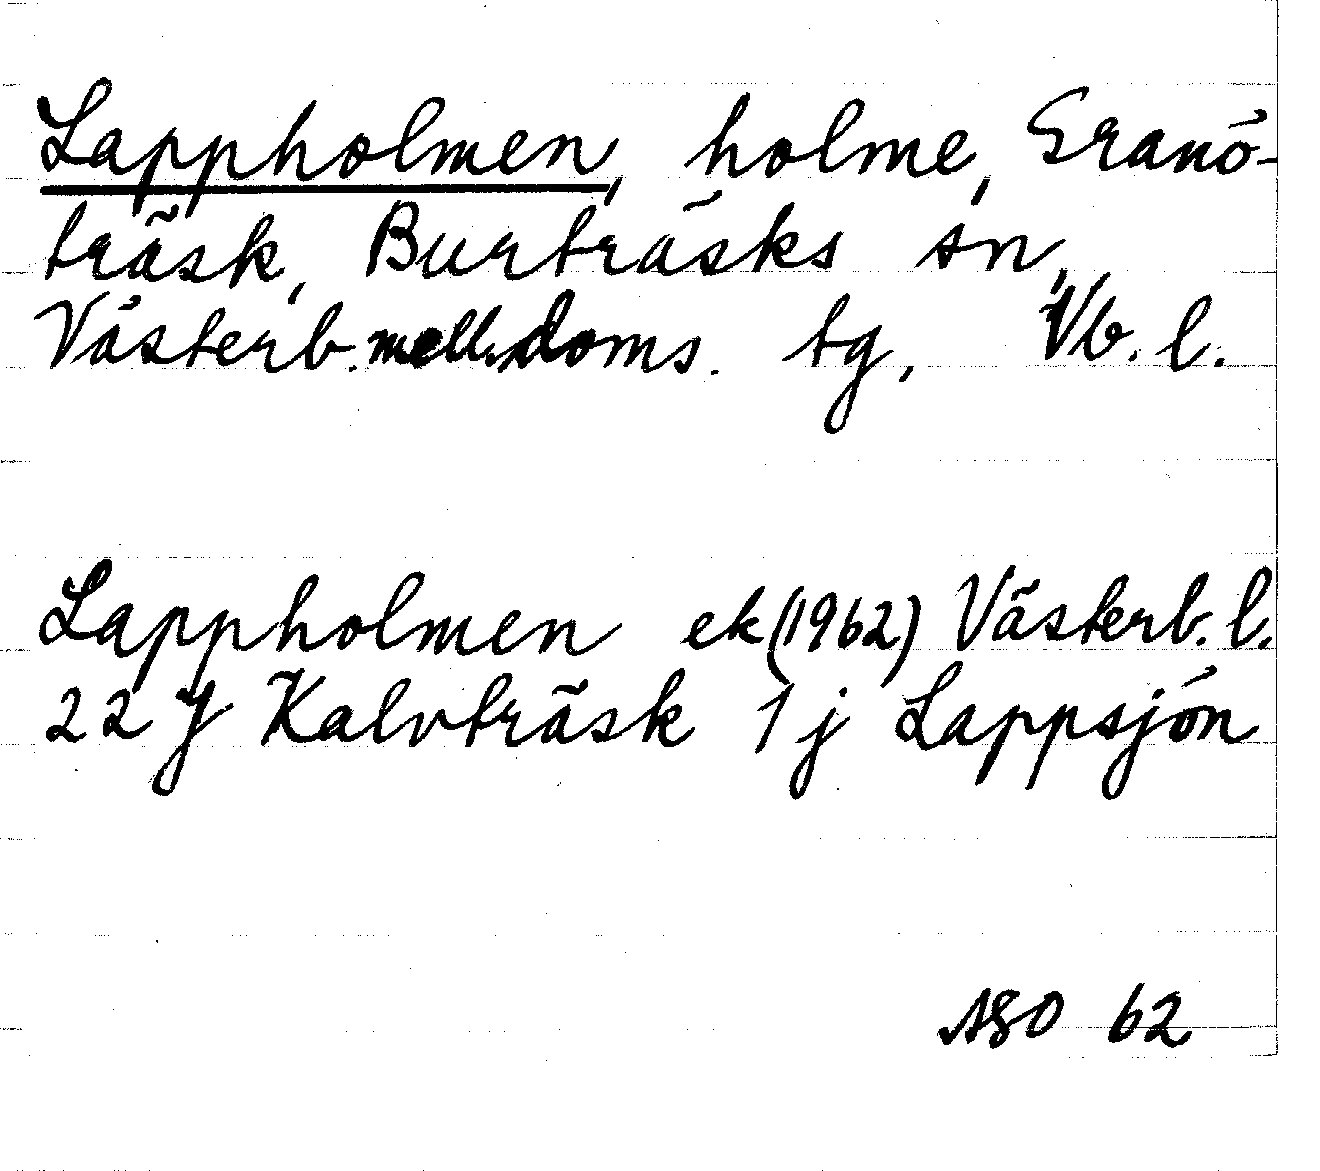 Lappholmen, holme, Granö-
träsk, Burträsks sn,
Västerb. mell. doms. tg, Vb. l.
Lappholmen ek (1962) Västerb. l.
22 J Kalvträsk 1 j Lappsjön
ASO 62